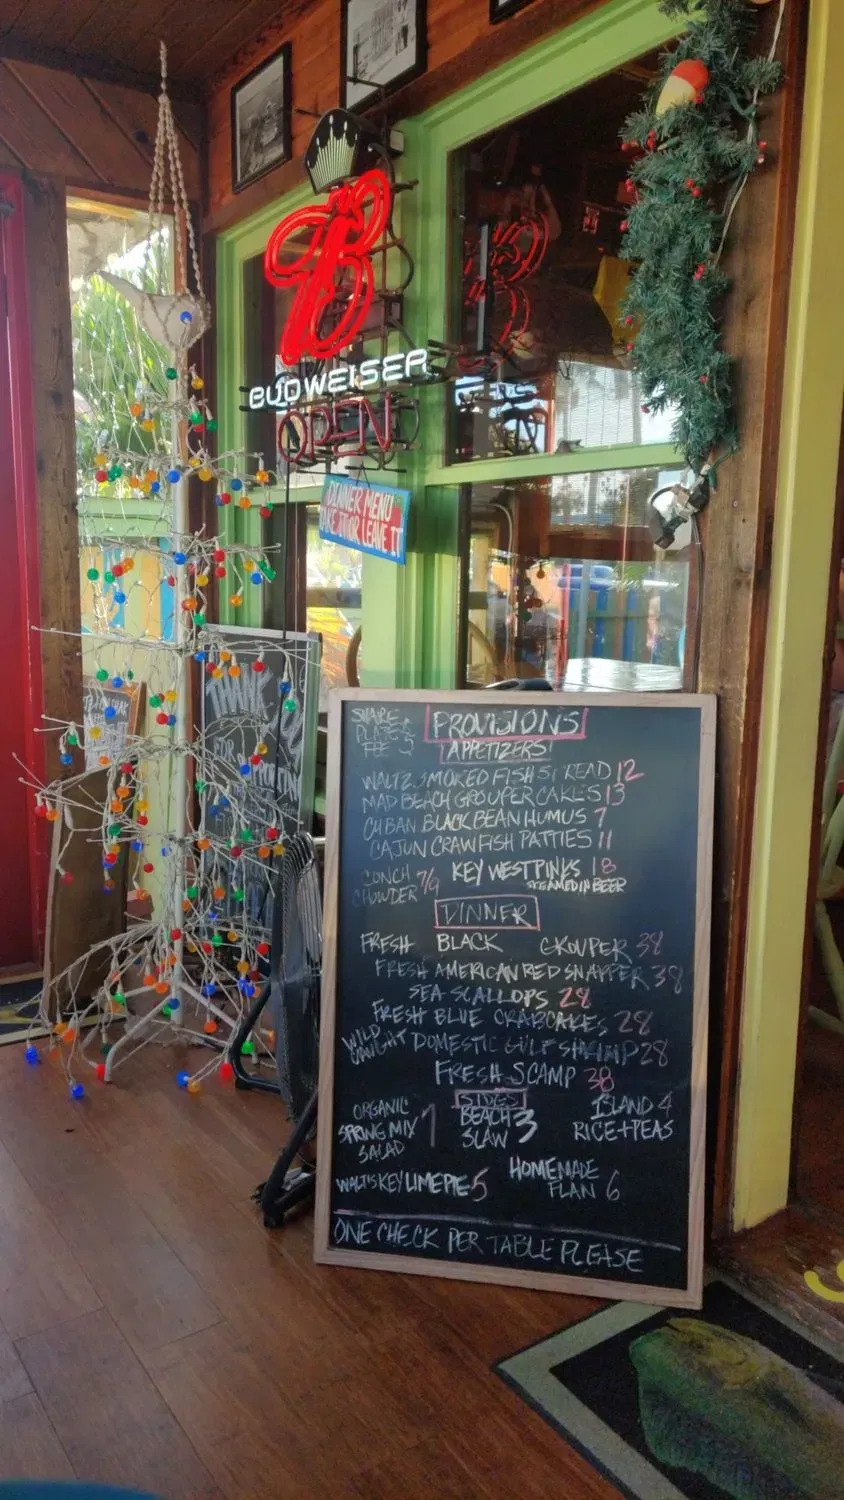 BUDWEISER
OPEN
DINNER MENU
TAKE IT OR LEAVE IT
THANK YOU
FOR
SHARE
PLATE
FEE
PROVISIONS
APPETIZERS
WALTZ SMOKED FISH SPREAD 12
MAD BEACH GROUPER CAKES 13
CUBAN BLACK BEAN HUMUS 7
CAJUN CRAWFISH PATTIES 11
CONCH
CHOWDER 7/9
KEY WEST PINKS 18
STEAMED IN BEER
DINNER
FRESH BLACK GROUPER 38
FRESH AMERICAN RED SNAPPER 38
SEA SCALLOPS 28
FRESH BLUE CRABCAKES 28
WILD
CAUGHT DOMESTIC GULF SHRIMP 28
FRESH SCAMP 38
SIDES
ORGANIC
SPRING MIX
SALAD 7
BEACH
SLAW 3
ISLAND 4
RICE + PEAS
WALT'S KEY LIME PIE 5
HOMEMADE
FLAN 6
ONE CHECK PER TABLE PLEASE